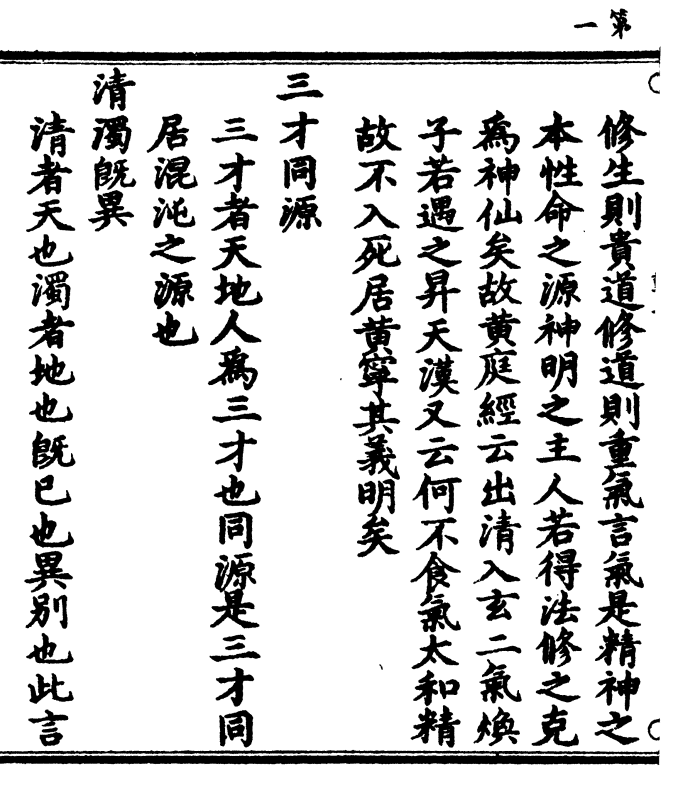 第一
修生則貴道修道則重氣言氣是精神之
本性命之源神明之主人若得法修之克
爲神仙矣故黄庭經云出清入玄二氣煥
子若遇之昇天漢又云何不食氣太和精
故不入死居黄寧其義明矣
三才同源
三才者天地人爲三才也同源是三才同
居混沌之源也
清濁旣異
清者天也濁者地也旣已也異別也此言